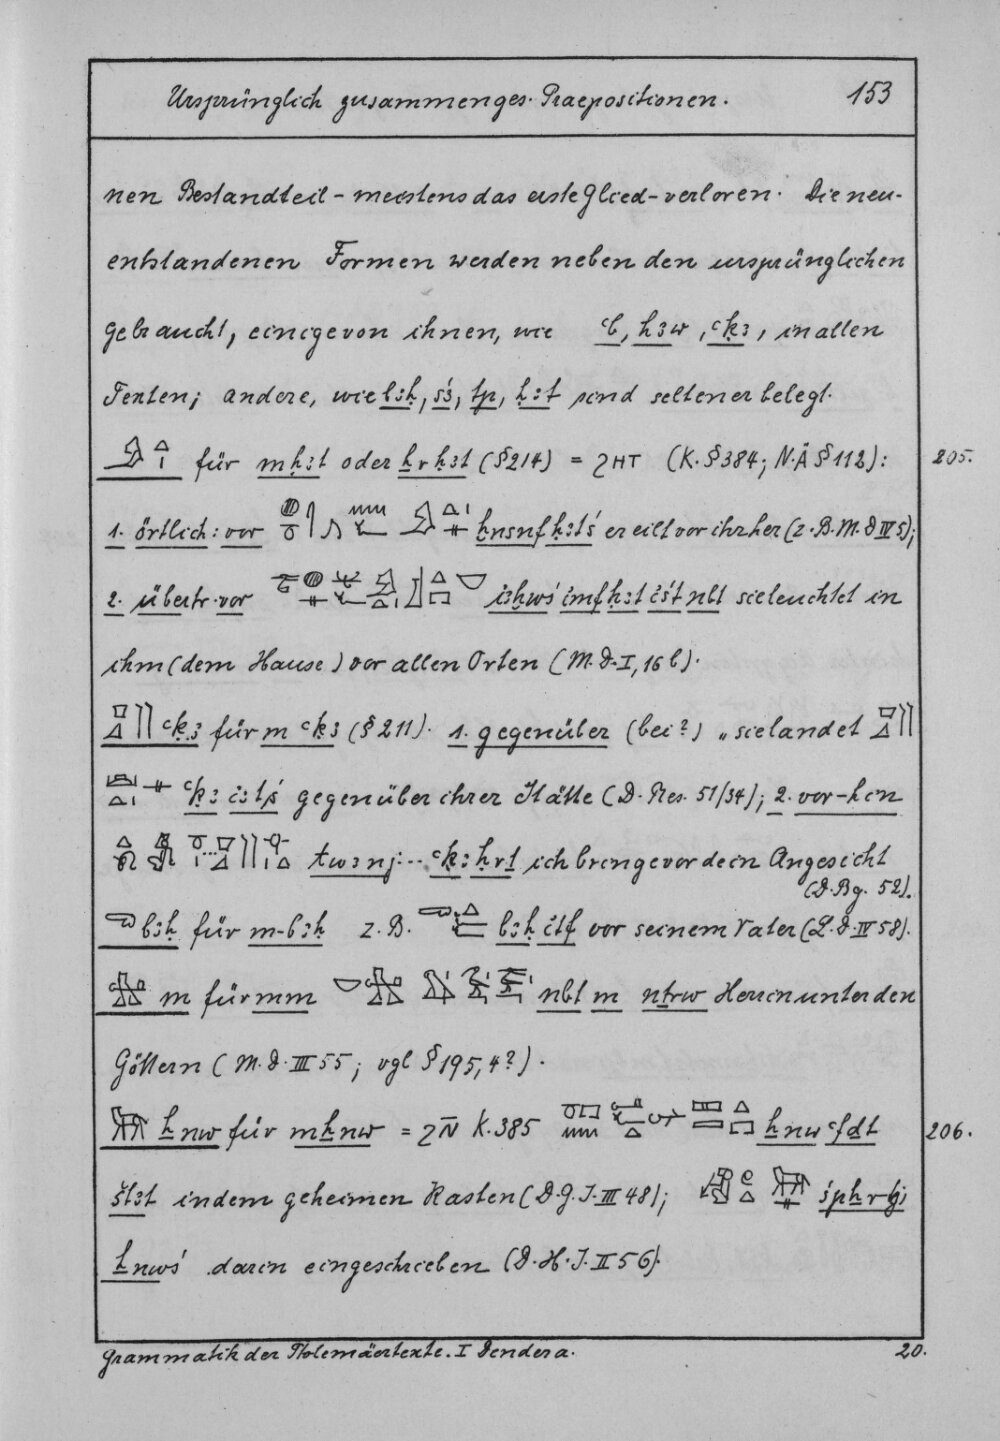 Ursprünglich zusammenges. Praepositionen. 153
nen Bestandteil - meistens das erste Glied - verloren. Die neu-
entstandenen Formen werden neben den ursprünglichen
gebraucht, einige von ihnen, wie ꜥb, hꜣw, ꜥḳꜣ, in allen
Texten; andere, wie bꜣḥ, sꜣ, tp, ḫꜣt sind seltener belegt.
für mḥꜣt oder ẖrḥꜣt (§214) = ϩⲏⲧ (K. §384; N.Ä §112): 205.
1. örtlich: vor er eilt vor ihr her (z.B. M.D IV 5);
2. übertr. vor sie leuchtet in
ihm (dem Hause) vor allen Orten (M.D. I, 16 b).
ꜥḳꜣ für m ꜥḳꜣ (§ 211). 1. gegenüber (bei?) „sie landet
gegenüber ihrer Stätte (D. Res. 51/34); 2. vor-hin
ich bringe vor dein Angesicht
(D. Bg. 52).
bꜣḥ für m-bꜣḥ z.B. bꜣḥ ı͗tf vor seinem Vater (L.D. IV 58).
m für mm nbt m nṯrw Herrin unter den
Göttern (M.D. III 55; vgl §195,4?).
ẖnw für mẖnw = ϩⲛ̄ K. 385 ẖnw ꜥfdt 206.
štꜣt in dem geheimen Kasten (D.G.J. III 48);
ẖnwś darin eingeschrieben (D.H.J. II 56).
Grammatik der Ptolemäertexte. I Dendera. 20.